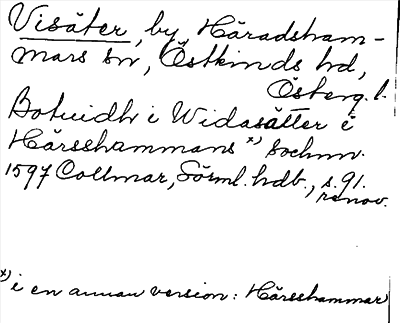 Visäter, by, Häradsham-
mars sn, Östkinds hd,
Österg. l.
Botuidh i Widasätter i
Härsshammans x) Sochnn.
1597 Collmar, Sörml. hdb., s. 91.
renov.
x) i en annan version: Härsshammar